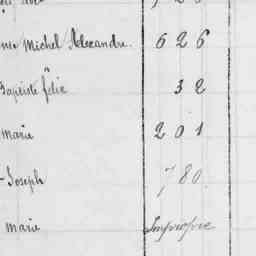 Michel Alexandre. 626
Baptiste félix 32
Marie 201
Joseph 780
Marie Impropre